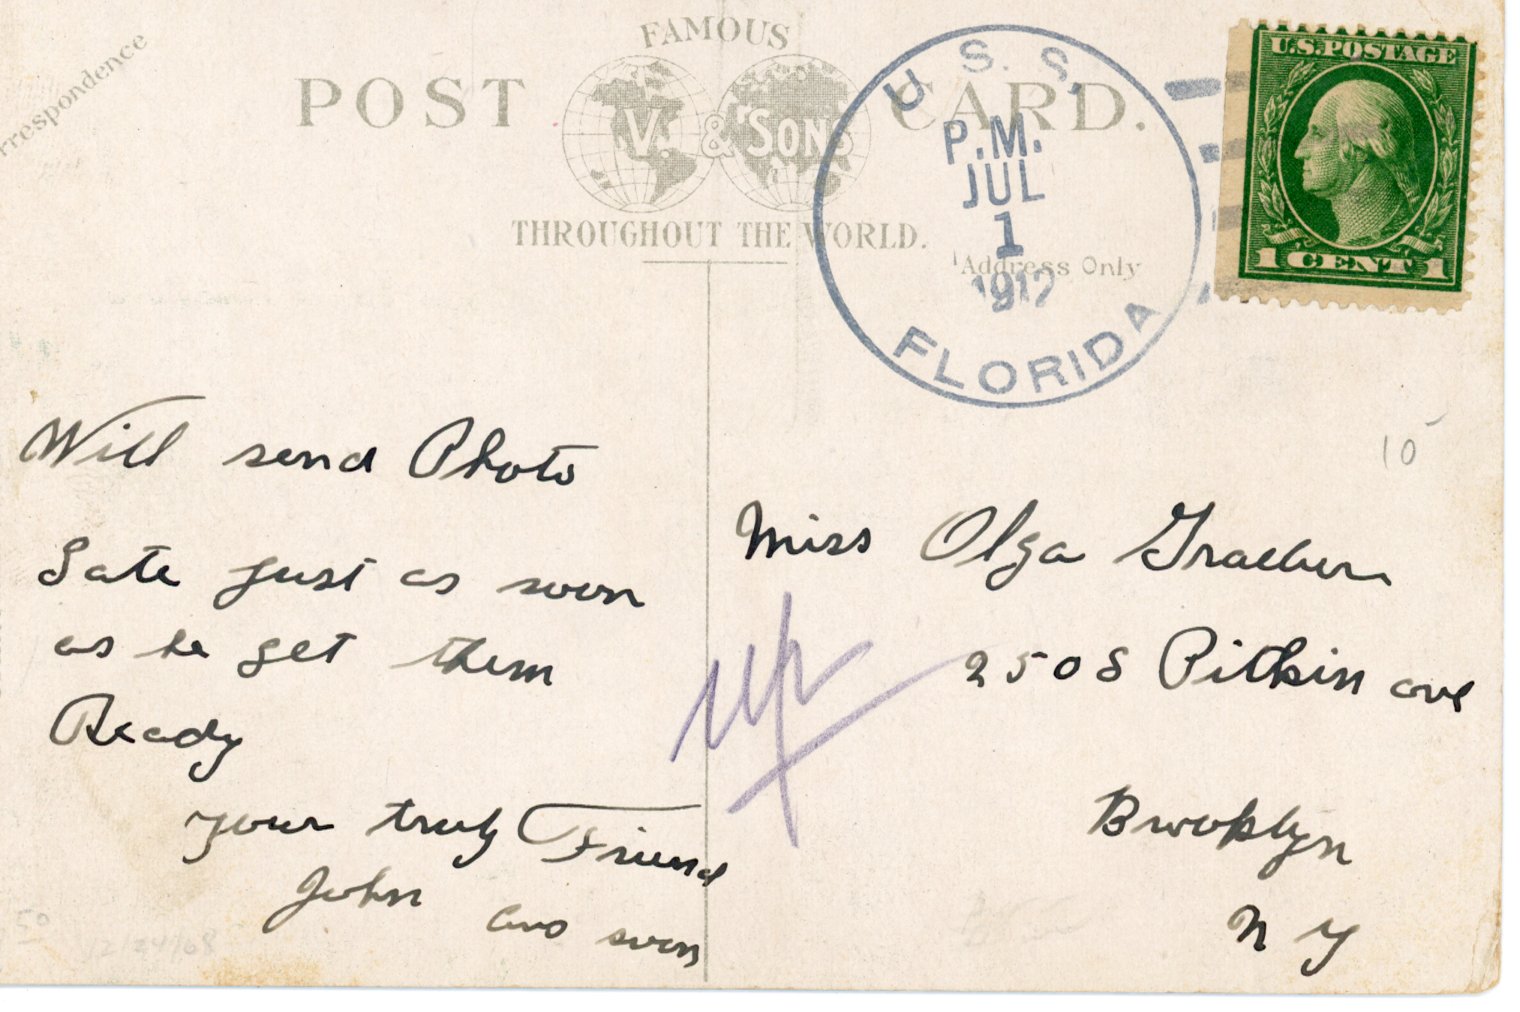 rrespondence
FAMOUS
POST CARD.
V. & SONS
THROUGHOUT THE WORLD.
Address Only
U.S.S.
P.M.
JUL
1
1912
FLORIDA
U.S.POSTAGE
1 CENT 1
10
Will send Photo
Late just as soon
as he get them
Ready
your truly Friend
John ans soon
Miss Olga Graeber
2508 Pitkin ave
Brooklyn
N Y
up
50
12/24/08